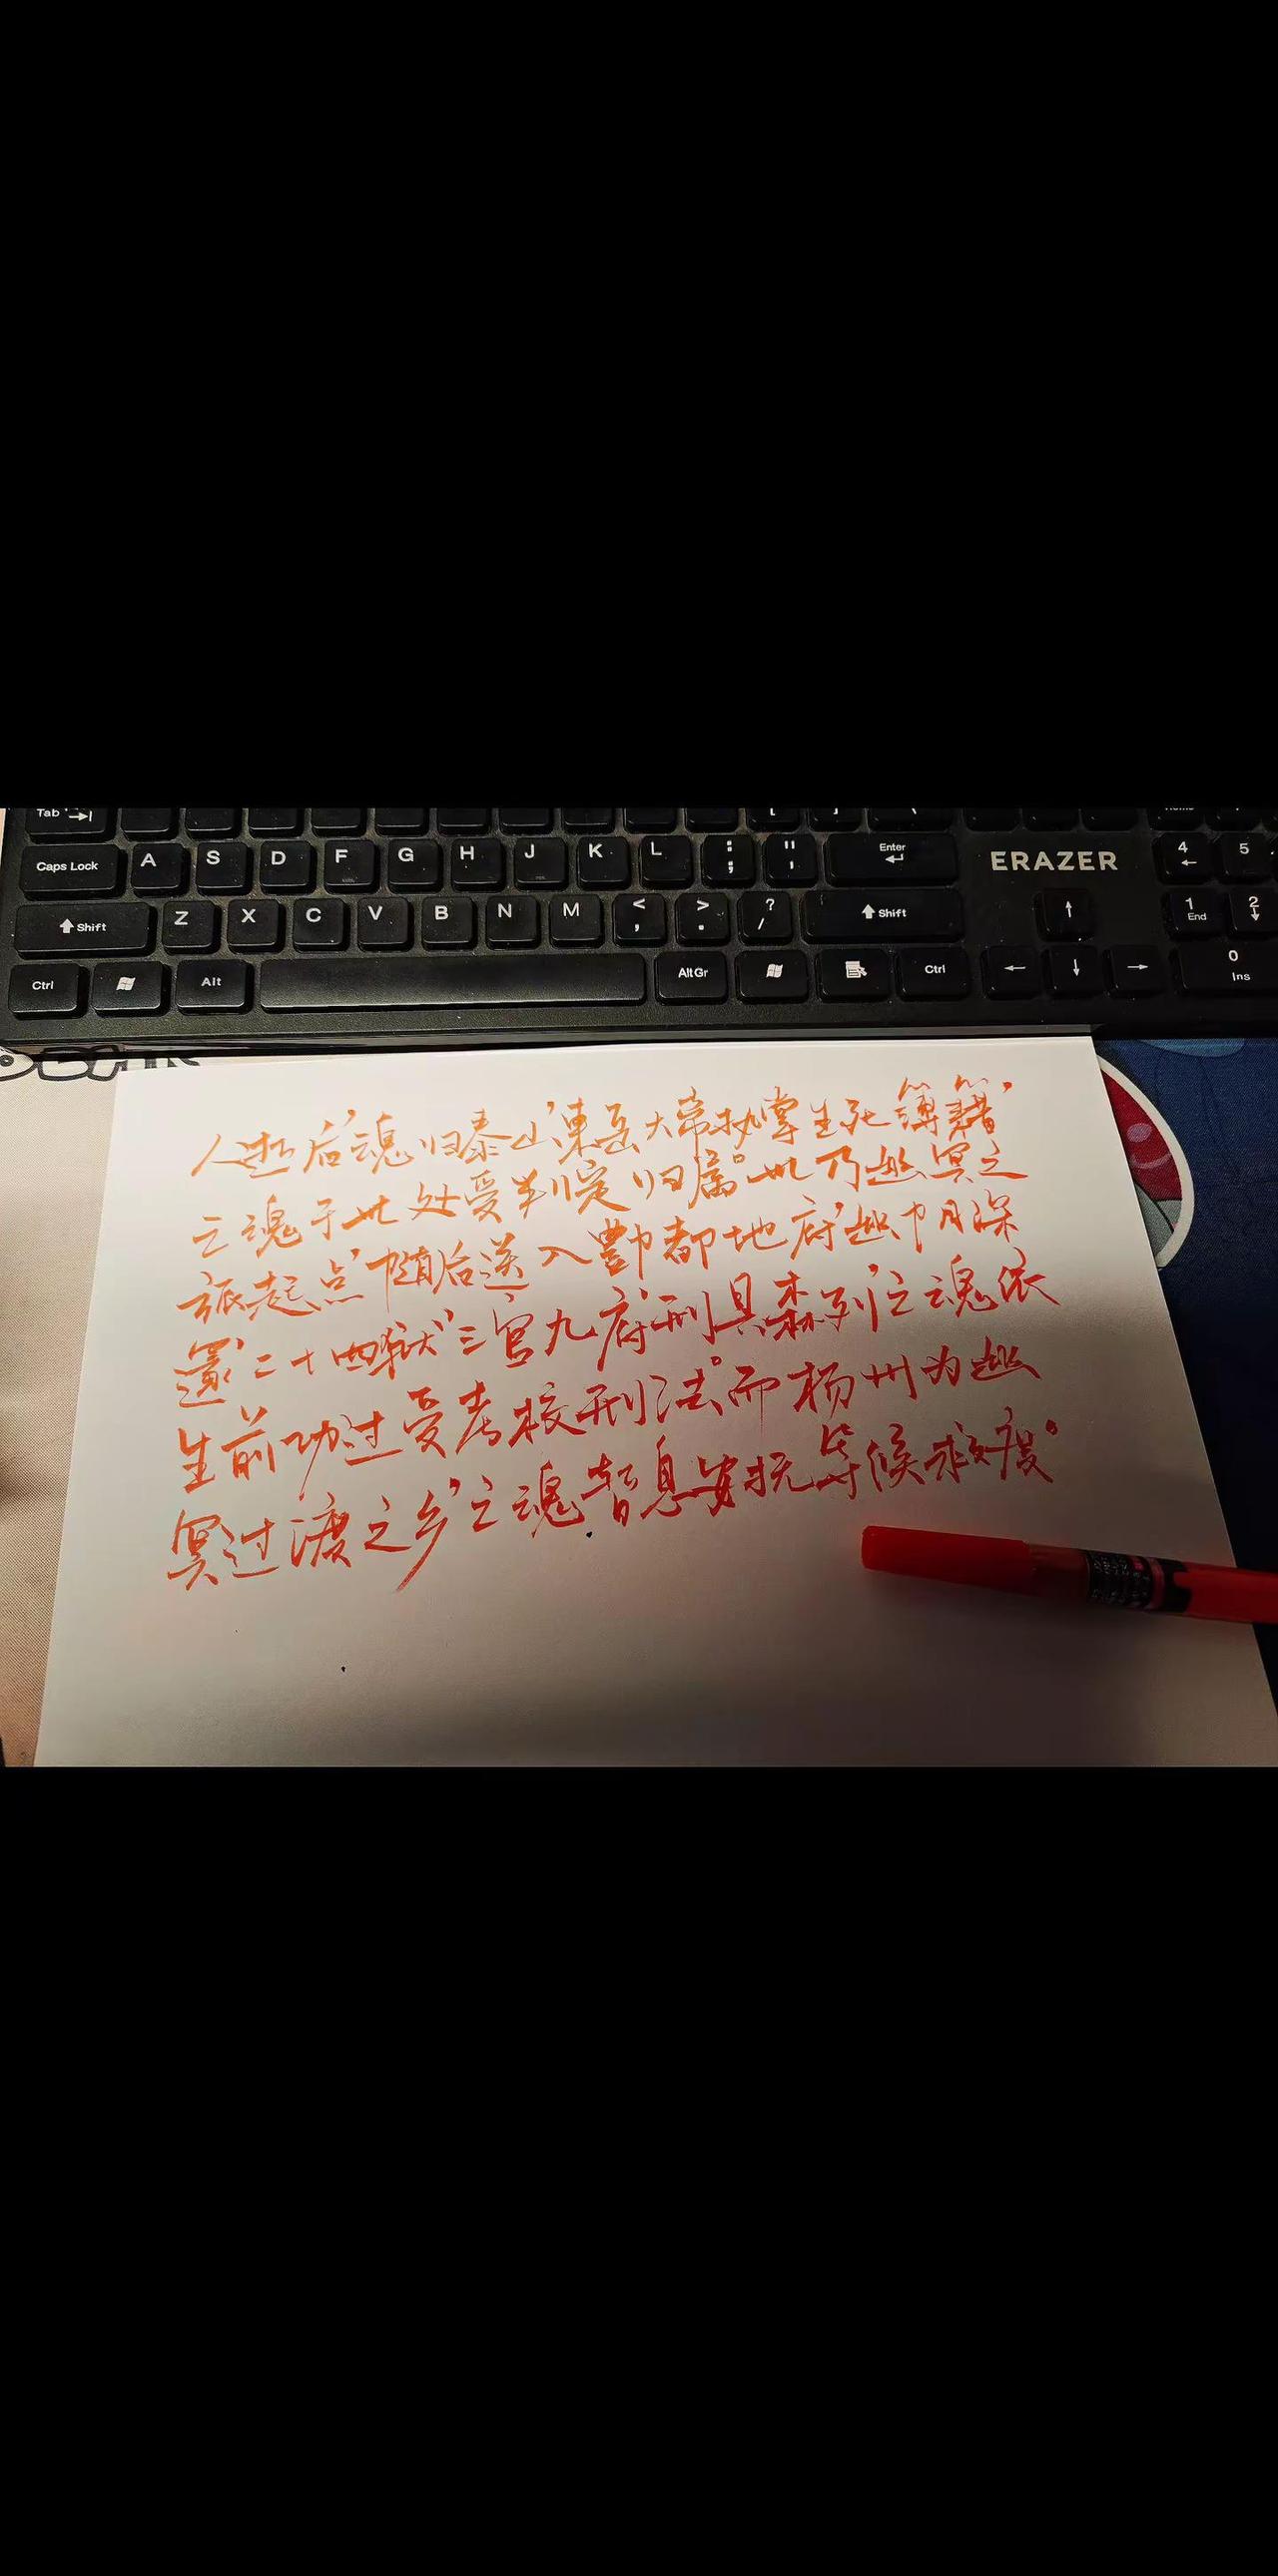 Tab
Caps Lock A S D F G H J K L : ; " ' Enter ERAZER 4 5
Shift Z X C V B N M < , > . ? / Shift 1 End 2
Ctrl Alt Alt Gr Ctrl 0 Ins
人逝后,魂归泰山,東岳大帝执掌生死簿籍,
亡魂于此处受判定归属。此乃幽冥之
旅起点,随后送入酆都地府,幽
二十四狱,三官九府,刑具森列,亡魂依
生前功过受考核刑法。而杨州为幽
冥过渡之乡,亡魂暂息安抚,等候救度。